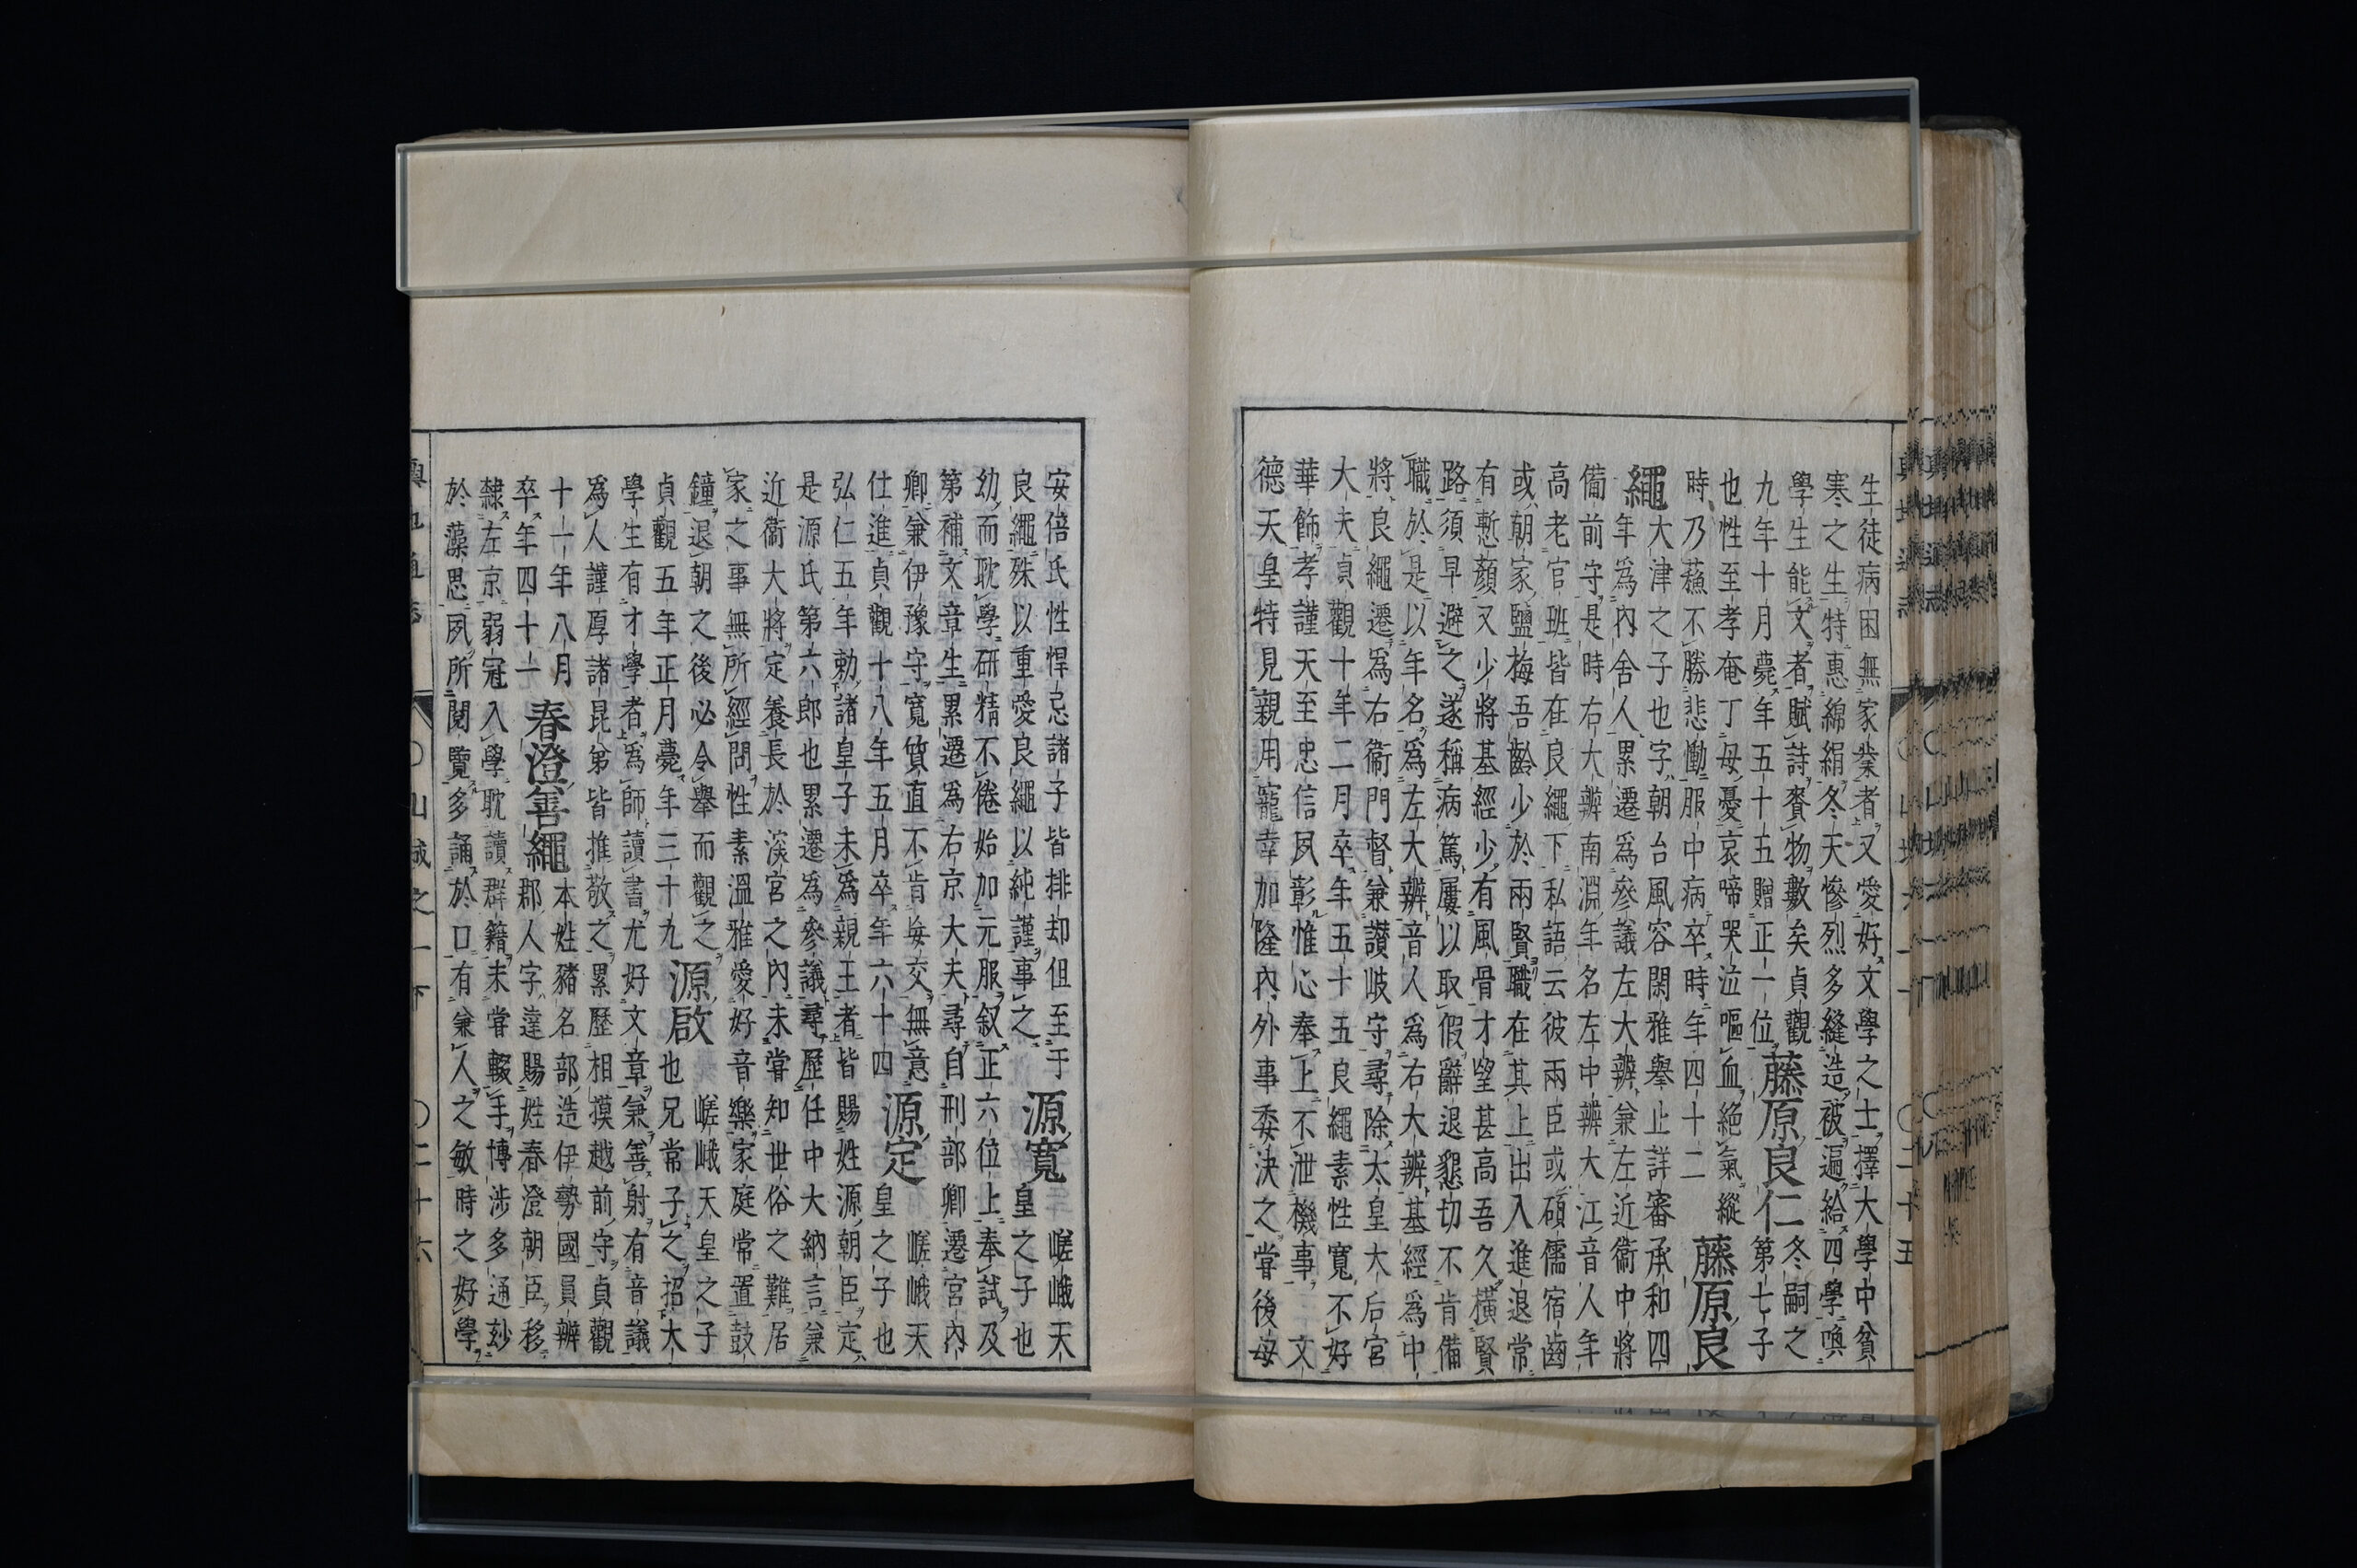 生徒病困無家業者又愛好文學之士擇大學中貧
寒之生特惠綿絹冬天慘烈多縫造被遍給四學喚
學生能文者賦詩賚物數矣貞觀藤原良仁冬嗣之
九年十月薨年五十五贈正一位第七子
也性至孝奄丁母憂哀啼哭泣嘔血絶氣縱
時乃蘓不勝悲慟服中病卒時年四十二藤原良
繩大津之子也字朝台風容閑雅舉止詳審承和四
年爲內舍人累遷爲參議左大辨兼左近衞中將
備前守是時右大辨南淵年名左中辨大江音人年
高老官班皆在良繩下私語云彼兩臣或碩儒宿齒
或朝家鹽梅吾齡少於兩賢職在其上出入進退常
有慙顔又少將基經少有風骨才望甚高吾久橫賢
路須早避之遂稱病篤屢以取假辭退懇切不肯備
職於是以年名爲左大辨音人爲右大辨基經爲中
將良繩遷爲右衞門督兼讃岐守尋除太皇大后宮
大夫貞觀十年二月卒年五十五良繩素性寬不好
華飾孝謹天至忠信夙彰惟心奉上不泄機事文
德天皇特見親用寵幸加隆內外事委決之甞後母
安倍氏性悍忌諸子皆排却但至于源寬嵯峨天
良繩殊以重愛良繩以純謹事之皇之子也
幼而耽學研精不倦始加元服叙正六位上奉試及
第補文章生累遷爲右京大夫尋自刑部卿遷宮內
卿兼伊豫守寬質直不肯每交無意源定嵯峨天
仕進貞觀十八年五月卒年六十四皇之子也
弘仁五年勅諸皇子未爲親王者皆賜姓源朝臣定
是源氏第六郎也累遷爲參議尋歷任中大納言兼
近衞大將定養長於淡宮之內未甞知世俗之難居
家之事無所經問性素溫雅愛好音樂家庭常置鼓
鐘退朝之後必令舉而觀之源啟嵯峨天皇之子
貞觀五年正月薨年三十九也兄常子之招大
學生有才學者爲師讀書尤好文章兼善射有音議
爲人謹厚諸昆弟皆推敬之累歷相摸越前守貞觀
十一年八月春澄善繩本姓豬名部造伊勢國員辨
卒年四十一郡人字達賜姓春澄朝臣移
隸左京弱冠入學耽讀群籍未甞輟手博涉多通玅
於藻思夙所閱覽多誦於口有兼人之敏時之好學